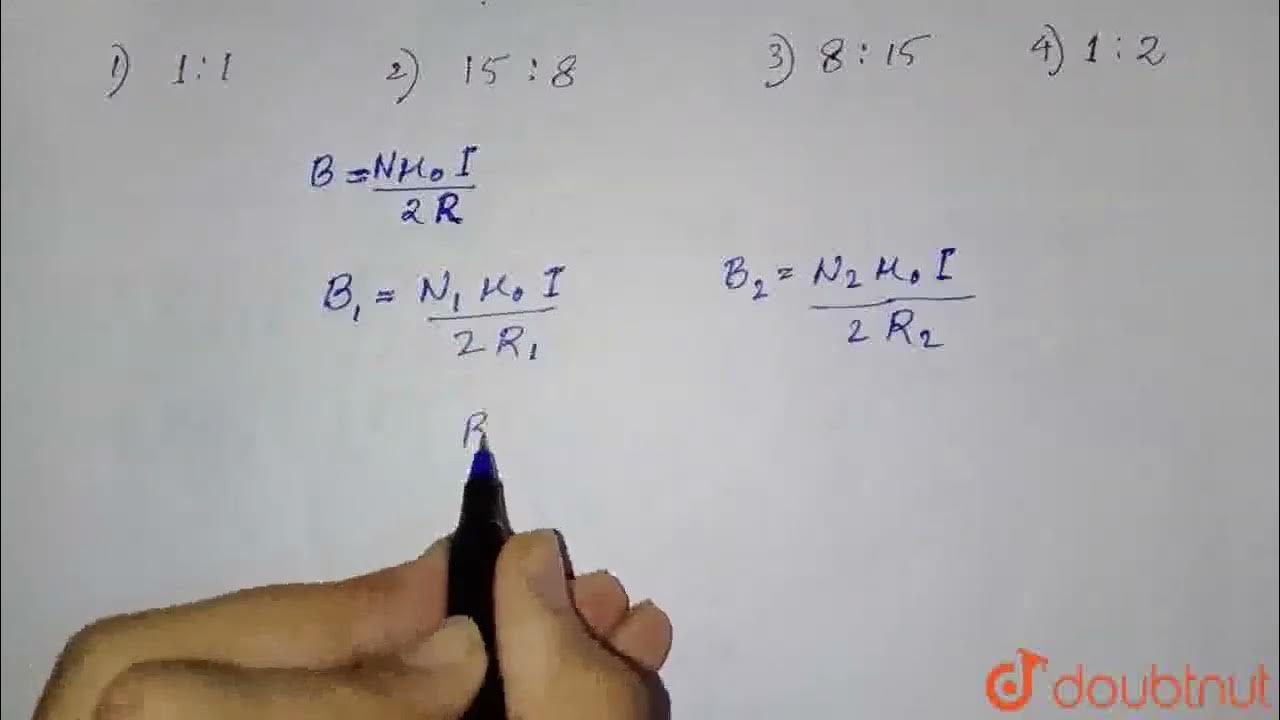 1) 1:1 2) 15:8 3) 8:15 4) 1:2
B = Nμ₀I / 2R
B₁ = N₁μ₀I / 2R₁ B₂ = N₂μ₀I / 2R₂
B
doubtnut